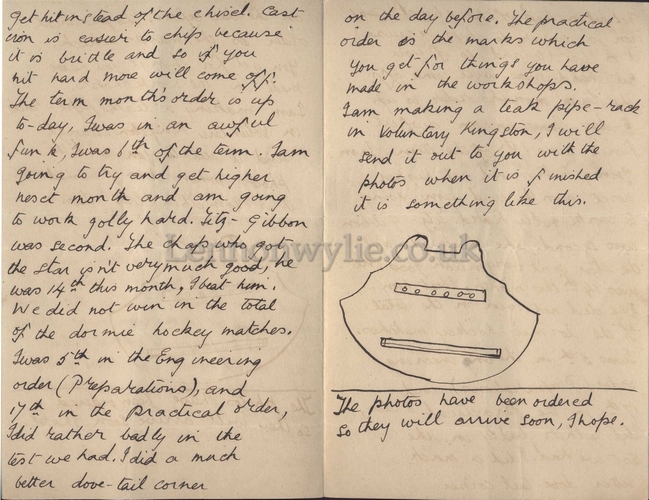 get hit instead of the chisel. Cast
iron is easier to chip because
it is brittle and so if you
hit hard more will come off.
The term month's order is up
to-day, I was in an awful
funk, I was 6th of the term. I am
going to try and get higher
next month and am going
to work golly hard. Fitz-Gibbon
was second. The chap who got
the star isn't very much good, he
was 14th this month, I beat him.
We did not win in the total
of the dormie hockey matches.
I was 5th in the Engineering
order (Preparations), and
17th in the practical order,
I did rather badly in the
test we had. I did a much
better dove-tail corner
on the day before. The practical
order is the marks which
you get for things you have
made in the workshops.
I am making a teak pipe-rack
in Voluntary Kingston, I will
send it out to you with the
photos when it is finished
it is something like this.
The photos have been ordered
so they will arrive soon, I hope.
Lennonwylie.co.uk